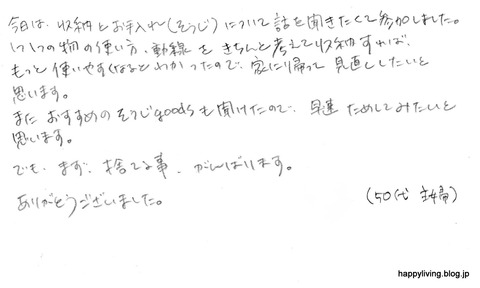 今日は、収納とお手入れ(そうじ)について話を聞きたくて参加しました。
1つ1つの物の使い方、動線をきちんと考えて収納すれば、
もっと使いやすくなるとわかったので、家に帰って見直ししたいと
思います。
また おすすめのそうじgoodsも聞けたので、早速 ためしてみたいと
思います。
でも、まず、捨てる事、がんばります。
ありがとうございました。
(50代 主婦)
happyliving.blog.jp